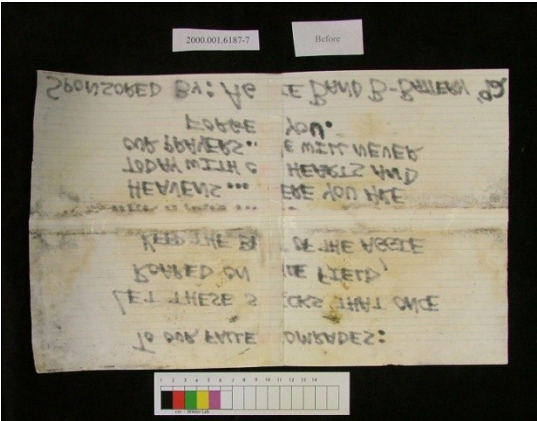 2000.001.6187-7
Before
TO OUR FALLE OMRADES:
LET THESE S CKS THAT ONCE
ROARED ON HE FIELD
KEEP THE B OF THE AGGIE
HEAVENS ... ERE YOU ARE
TODAY WITH O HEARTS AND
OUR PRAYERS.. E WILL NEVER
FORGE YOU.
SPONSORED BY: AG IE BAND B-BATTERY '92
1 2 3 4 5 6 7 8 9 10 11 12 13 14